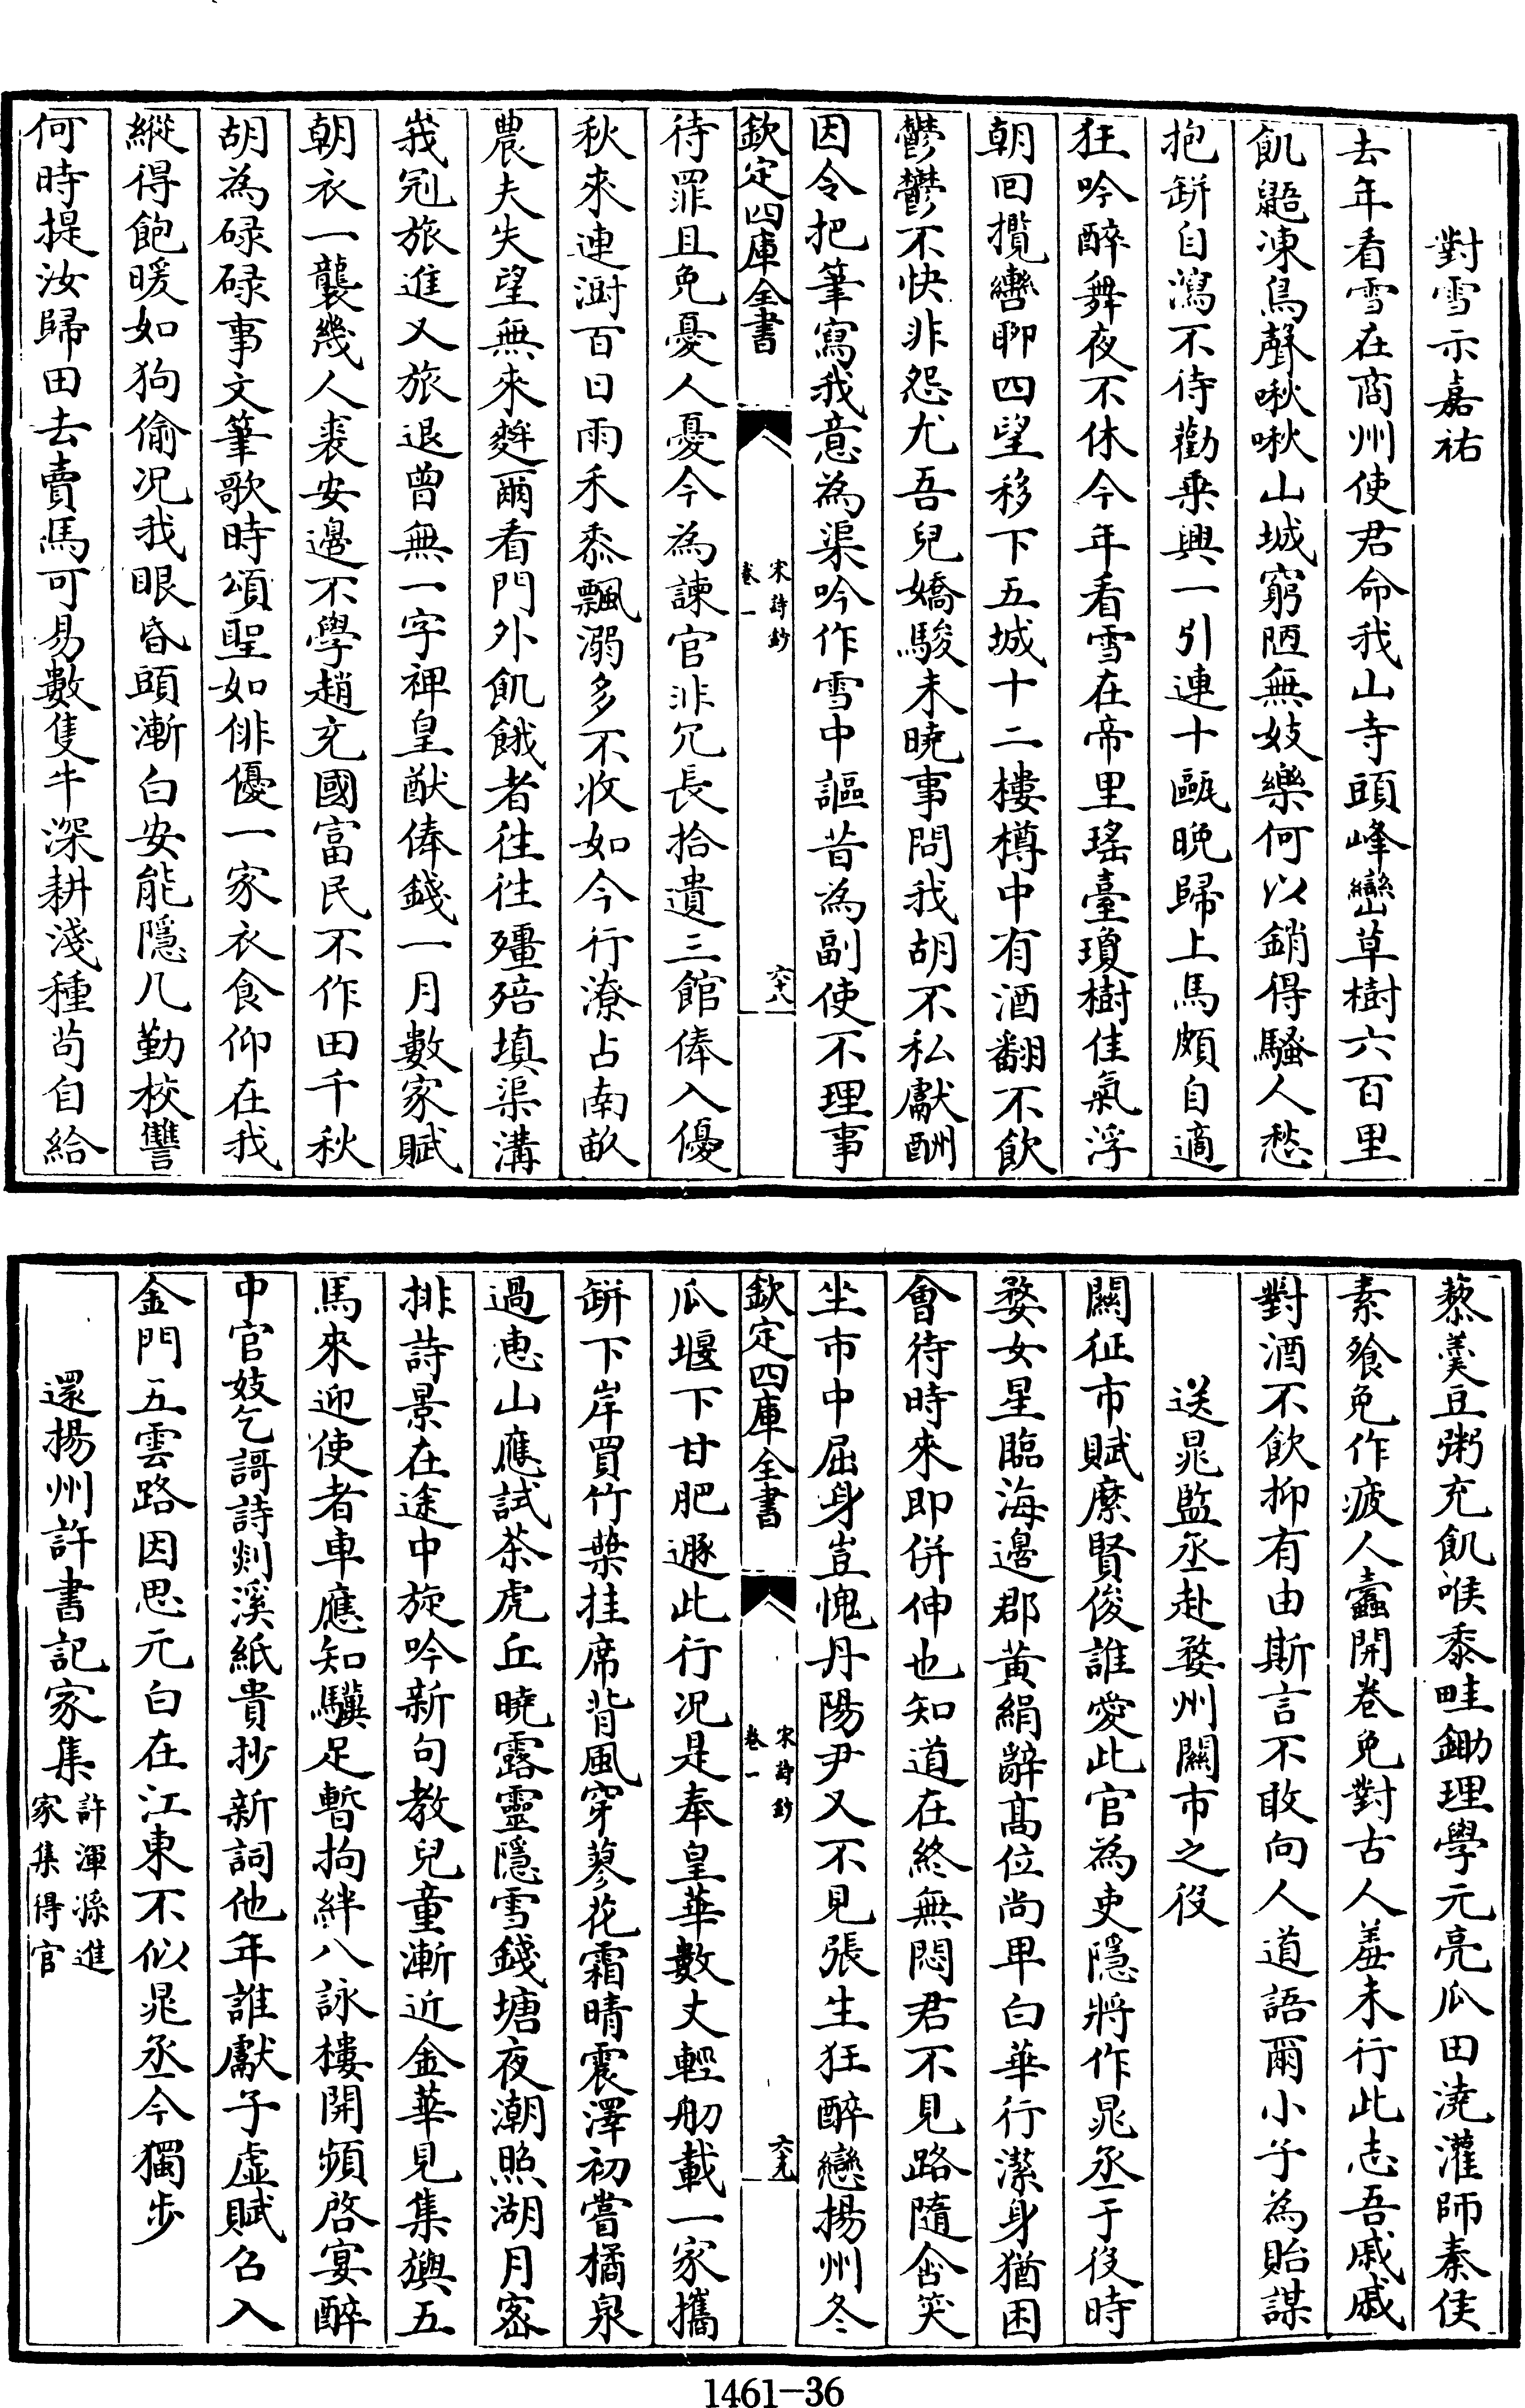 對雪示嘉祐
去年看雪在商州使君命我山寺頭峰巒草樹六百里
飢鼯凍鳥聲啾啾山城窮陋無妓樂何以銷得騷人愁
抱缾自瀉不待勸乗興一引連十甌晩歸上馬頗自適
狂吟醉舞夜不休今年看雪在帝里瑤臺瓊樹佳氣浮
朝回攬轡聊四望移下五城十二樓樽中有酒翻不飲
鬱鬱不快非怨尤吾兒嬌騃未曉事問我胡不私獻酬
因令把筆寫我意為渠吟作雪中謳昔為副使不理事
欽定四庫全書
宋詩鈔
卷一
六十八
待罪且免憂人憂今為諫官非冗長拾遺三館俸入優
秋來連澍百日雨禾黍飄溺多不收如今行潦占南畝
農夫失望無來麰爾看門外飢餓者往往殭踣填渠溝
峩冠旅進又旅退曾無一字禆皇猷俸錢一月數家賦
朝衣一襲幾人裘安邊不學趙充國富民不作田千秋
胡為碌碌事文筆歌時頌聖如俳優一家衣食仰在我
縱得飽暖如狗偷况我眼昏頭漸白安能隱几勤校讐
何時提汝歸田去賣馬可易數隻牛深耕淺種茍自給
藜羮豆粥充飢喉黍畦鋤理學元亮瓜田澆灌師秦侯
素飱免作疲人蠧開卷免對古人羞未行此志吾戚戚
對酒不飲抑有由斯言不敢向人道語爾小子為貽謀
送晁監丞赴婺州闗市之役
闗征市賦縻賢俊誰愛此官為吏隱將作晁丞于役時
婺女星臨海邊郡黄絹辭髙位尚卑白華行潔身猶困
會待時來即併伸也知道在終無悶君不見路隨含笑
坐市中屈身豈愧丹陽尹又不見張生狂醉戀揚州冬
欽定四庫全書
宋詩鈔
卷一
六十九
瓜堰下甘肥遯此行况是奉皇華數丈輕舠載一家攜
缾下岸買竹葉挂席背風穿蓼花霜晴震澤初嘗橘泉
過恵山應試茶虎丘曉露靈隱雪錢塘夜潮照湖月宻
排詩景在途中旋吟新句教兒童漸近金華見集輿五
馬來迎使者車應知驥足暫拘絆八詠樓開頻啓宴醉
中官妓乞謌詩剡溪紙貴抄新詞他年誰獻子虚賦召入
金門五雲路因思元白在江東不似晁丞今獨步
還揚州許書記家集許渾孫進家集得官
1461-36